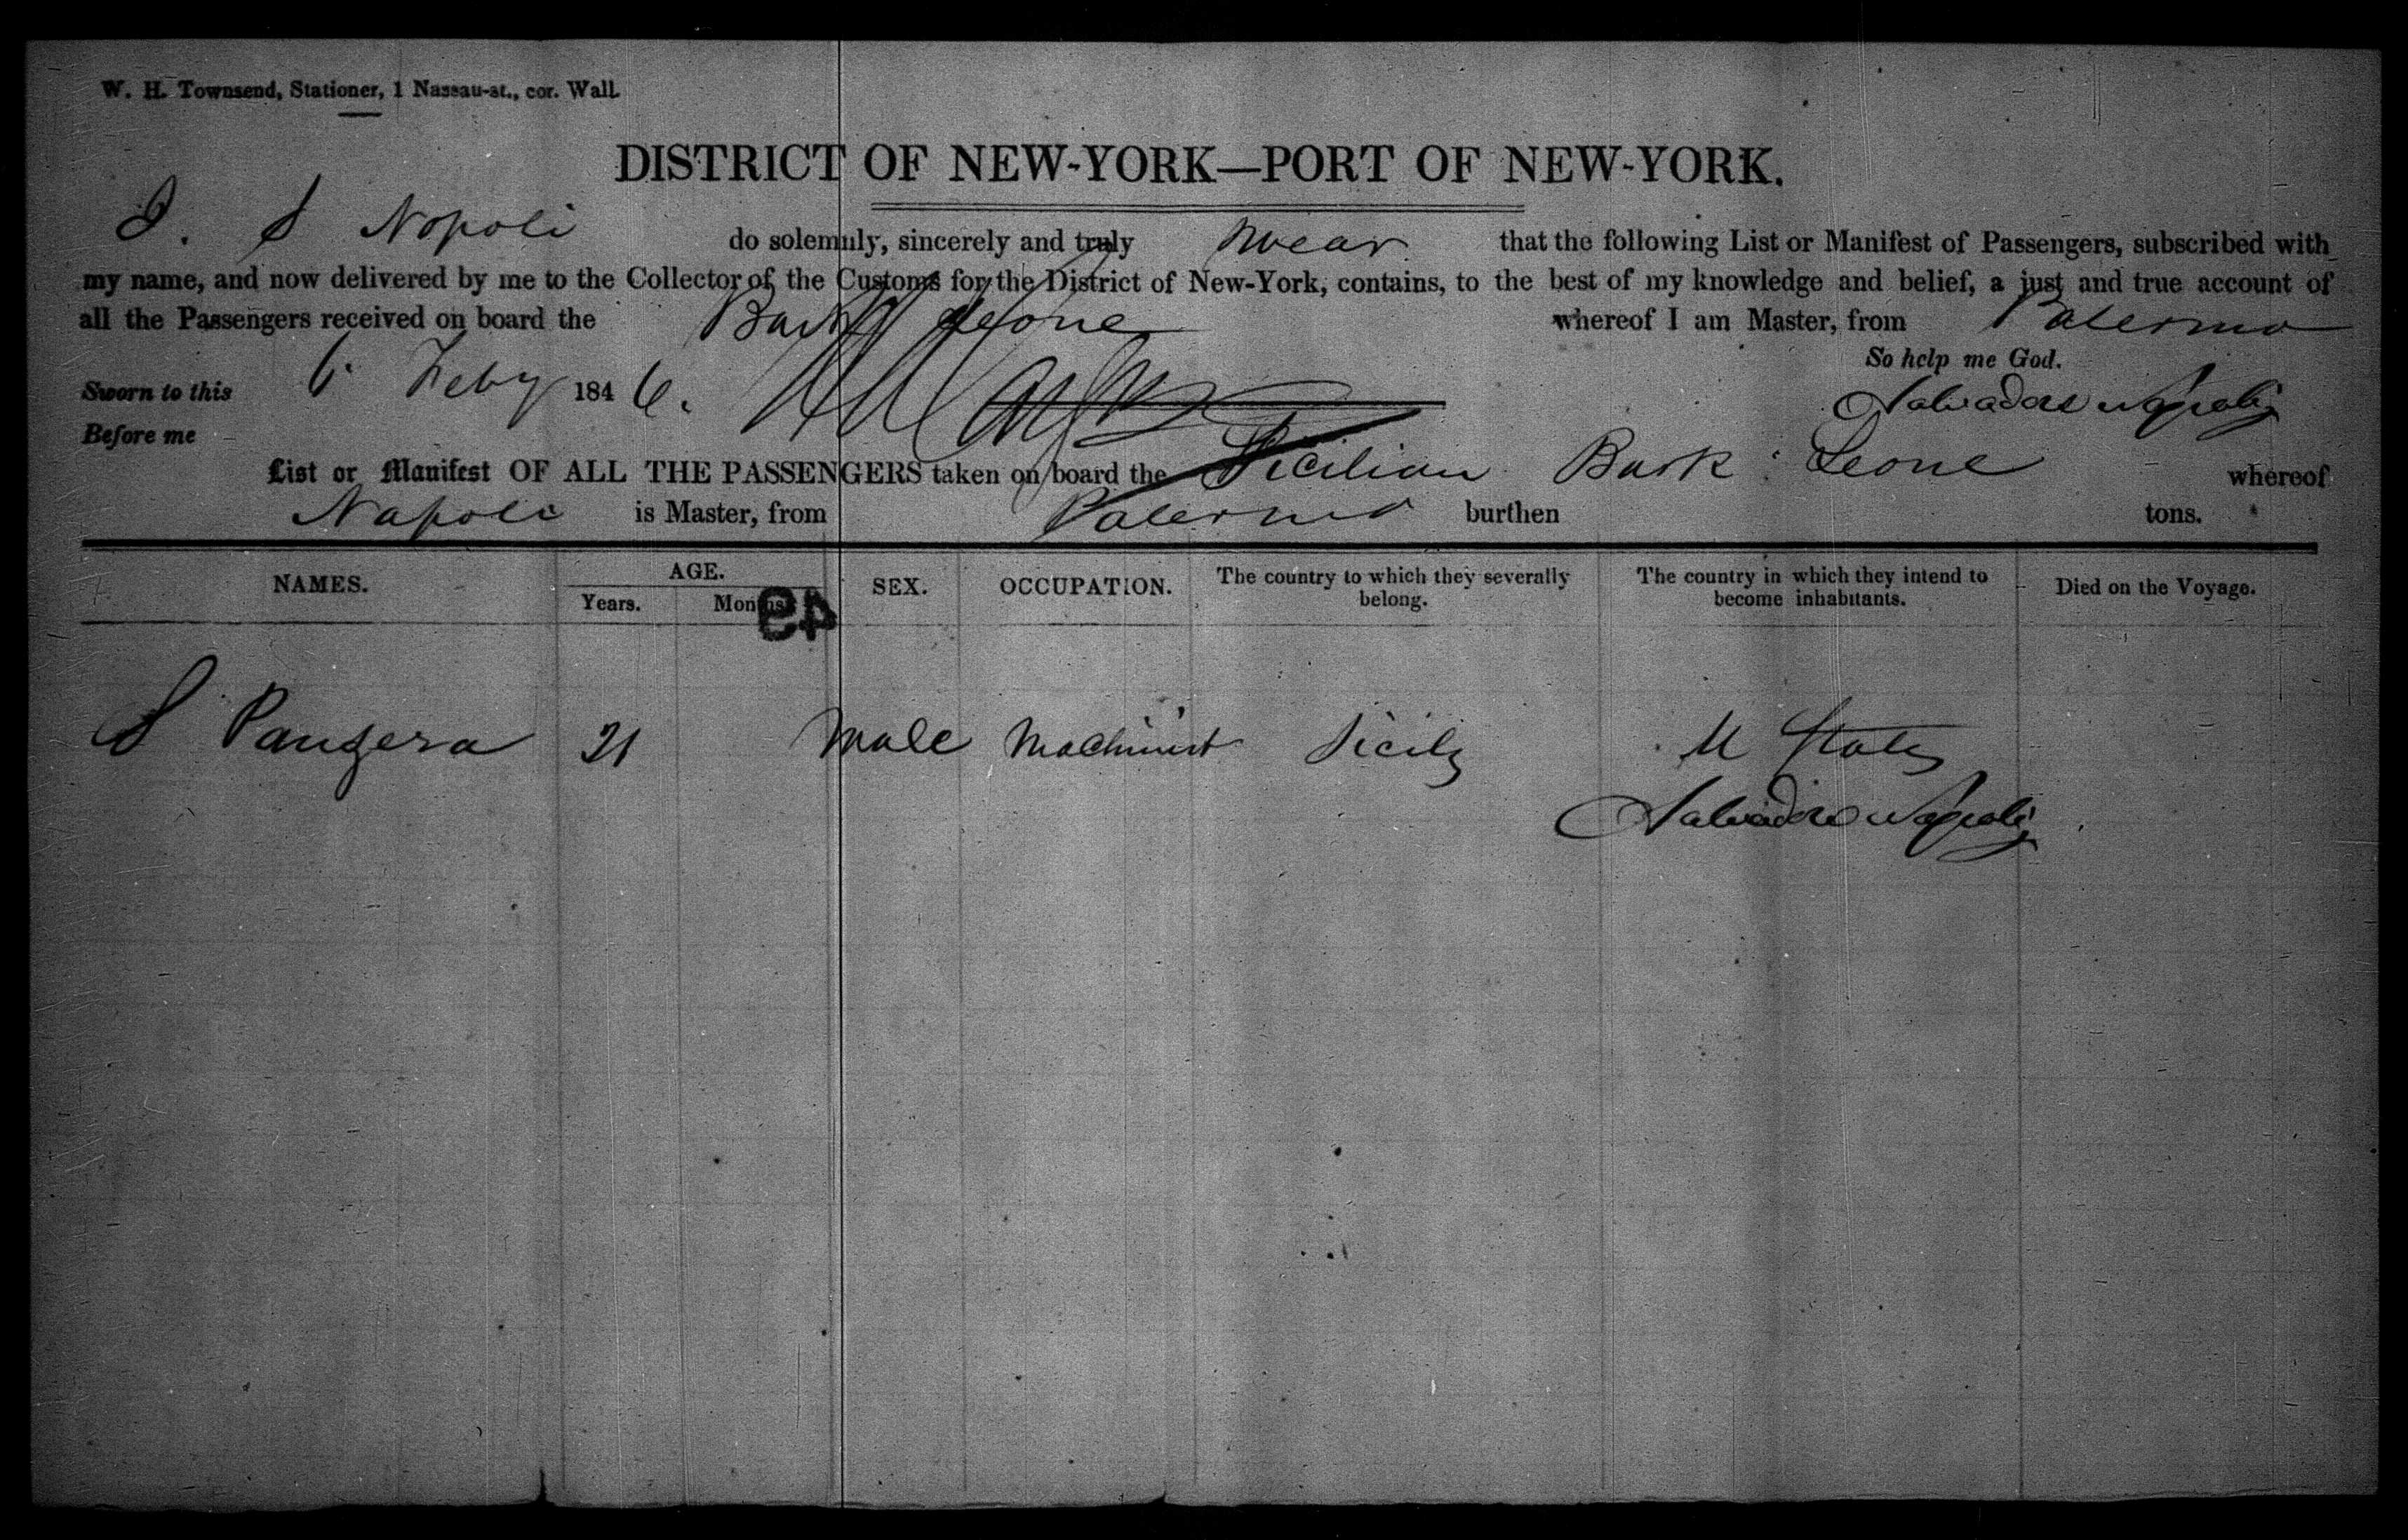 W. H. Townsend, Stationer, 1 Nassau-st., cor. Wall.
DISTRICT OF NEW-YORK—PORT OF NEW-YORK.
I. S Nopoli do solemnly, sincerely and truly swear that the following List or Manifest of Passengers, subscribed with
my name, and now delivered by me to the Collector of the Customs for the District of New-York, contains, to the best of my knowledge and belief, a just and true account of
all the Passengers received on board the Bark Leone whereof I am Master, from Palermo
So help me God.
Sworn to this 6 Feby 1846.
Salvadore Napoli
Before me
List or Manifest OF ALL THE PASSENGERS taken on board the Sicilian Bark Leone whereof
Napoli is Master, from Palermo burthen tons.
NAMES. AGE. SEX. OCCUPATION. The country to which they severally belong. The country in which they intend to become inhabitants. Died on the Voyage.
Years. Months.
49
S Panzera 21 Male Machinist Sicily U States
Salvadore Napoli